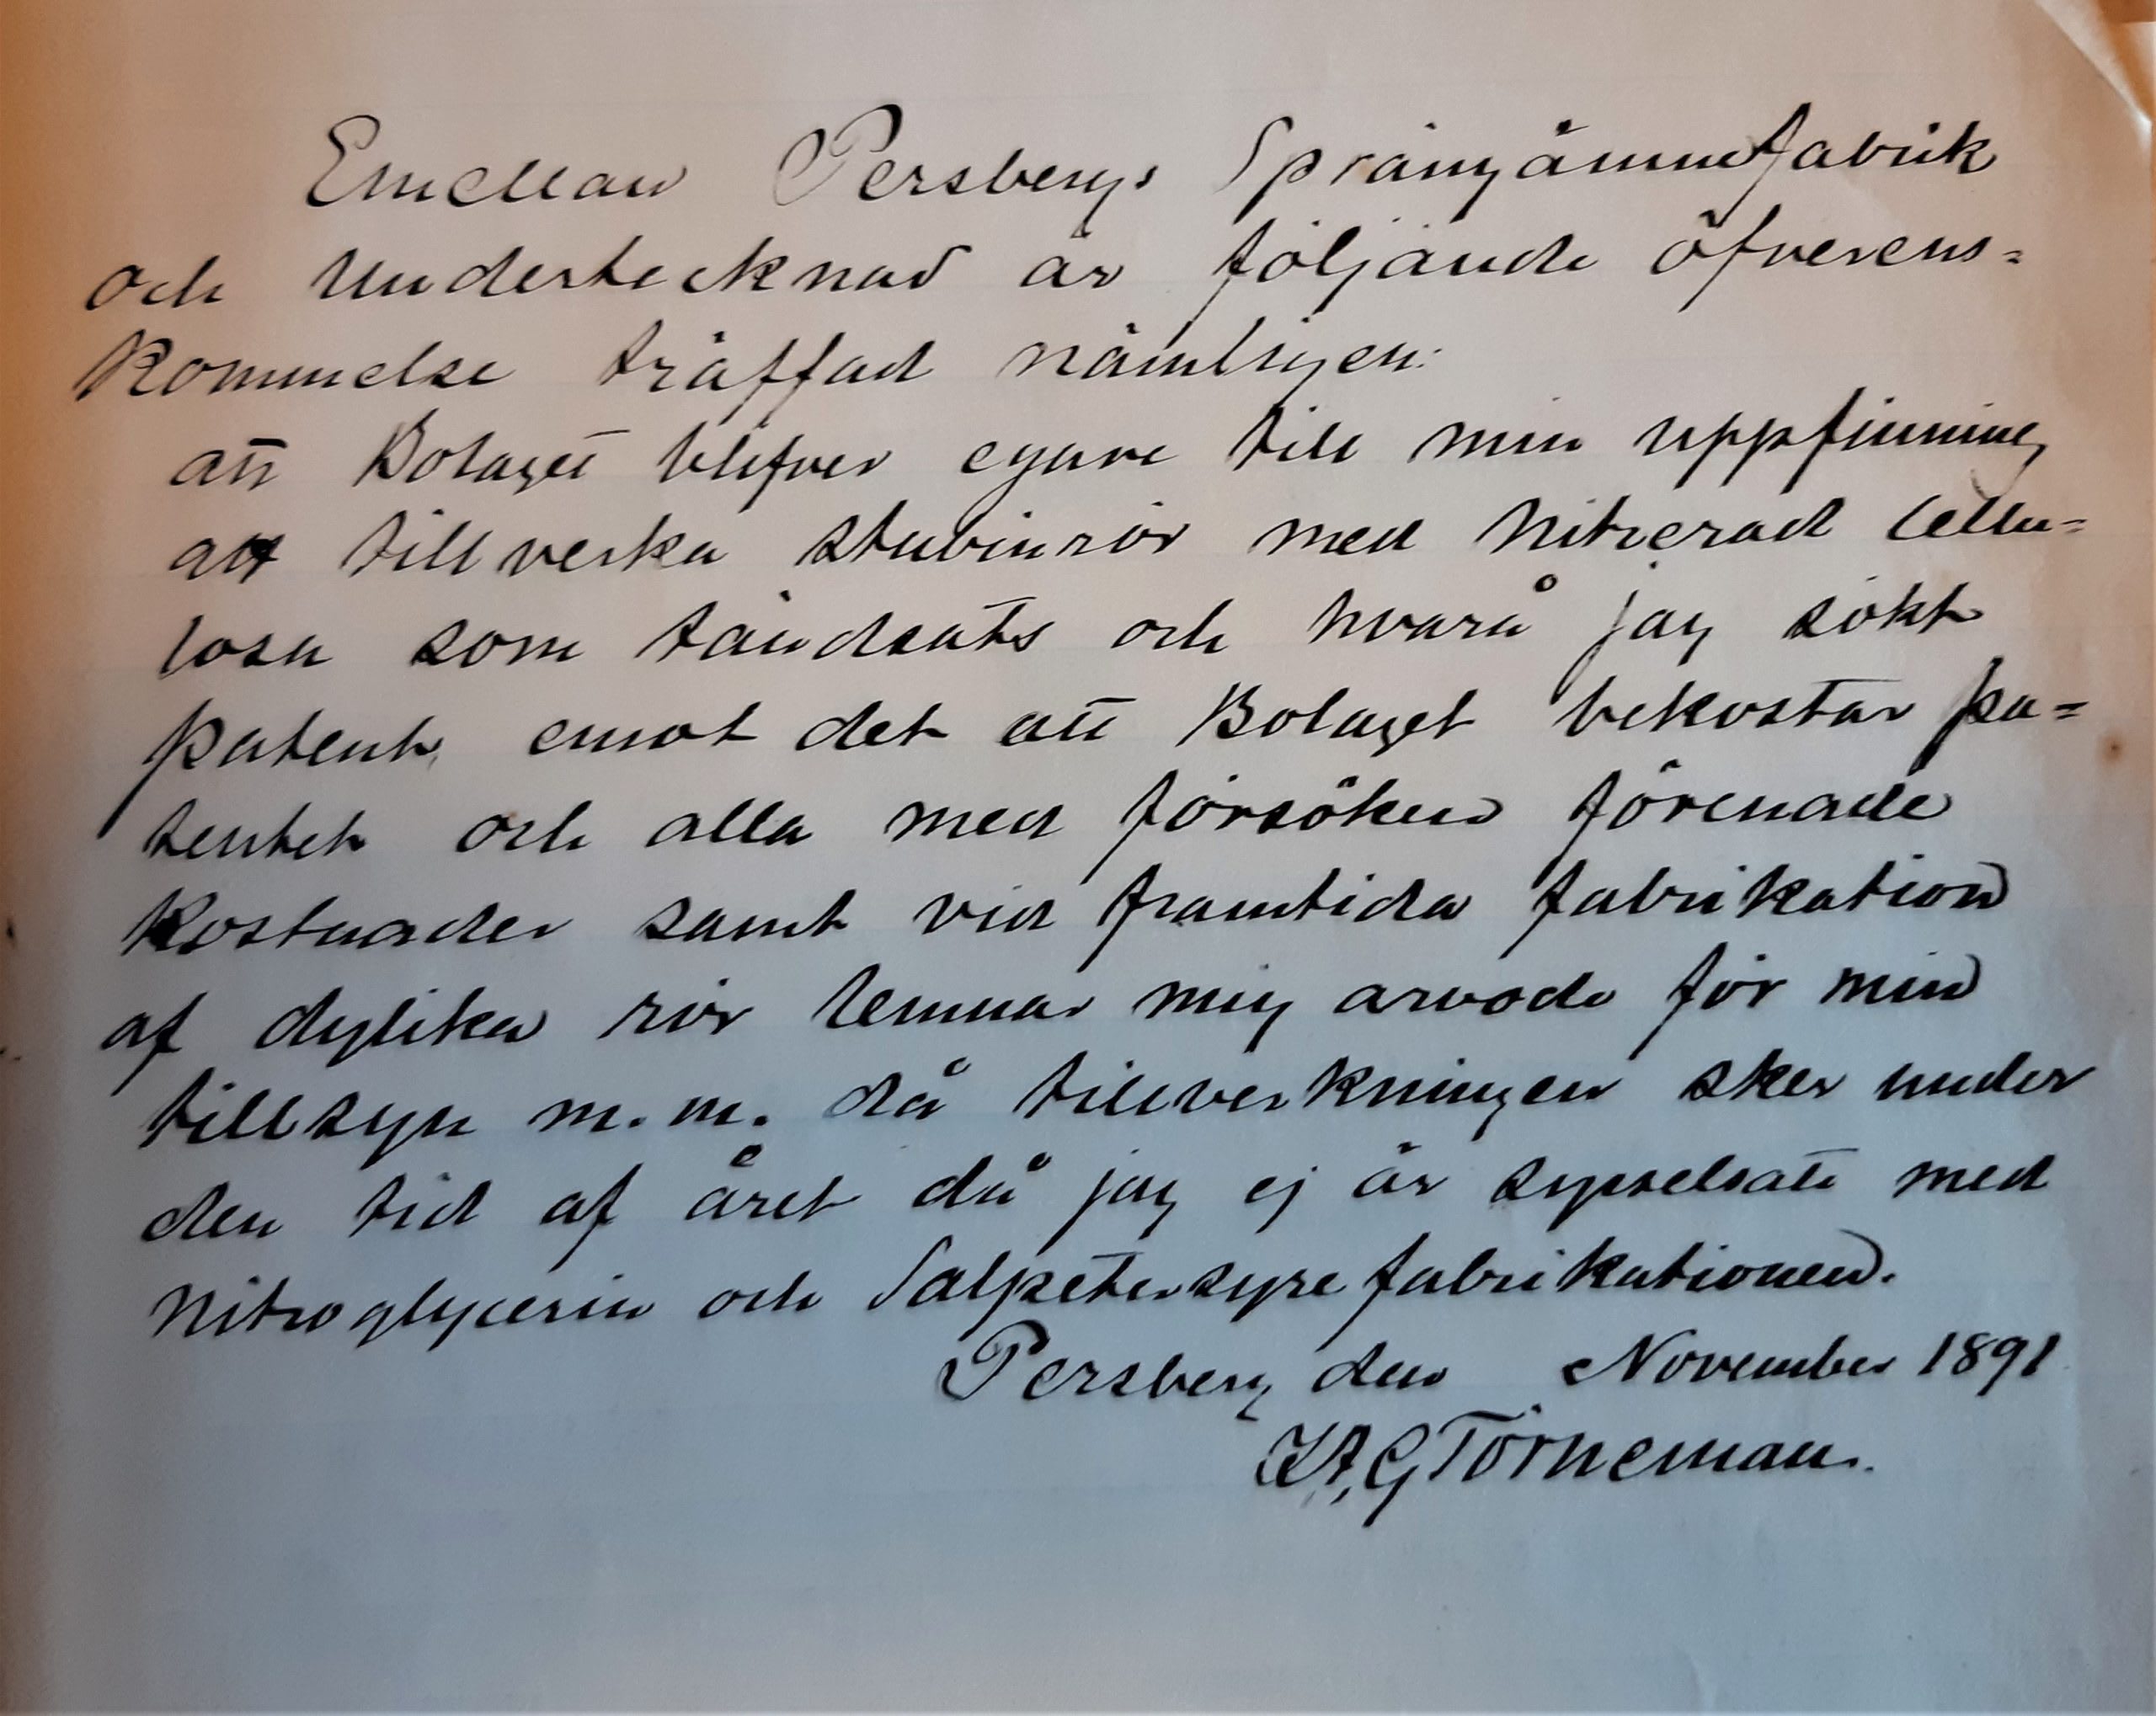 Emellan Persbergs Sprängämnefabrik
och Undertecknad är följande öfverens=
kommelse träffad nämligen:
att Bolaget blifver egare till min uppfinning
att tillverka stubinrör med Nitrerad Cellu=
losa som tändsats och hvarå jag sökt
patent, emot det att Bolaget bekostar pa=
tentet och alla med försöken förenade
Kostnader samt vid framtida fabrikation
af dylika rör lemnar mig arvode för min
tillsyn m.m. då tillverkningen sker under
den tid af året då jag ej är sysselsatt med
Nitroglycerin och Salpetersyre fabrikationen.
Persberg den November 1891
K.A.G Törneman.